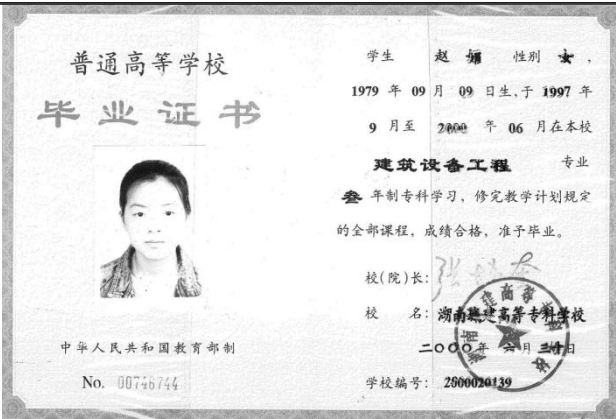 普通高等学校
毕业证书
中华人民共和国教育部制
No. 00746744
学生 赵 性别 女,
1979 年 09 月 09 日生,于 1997 年
9 月至 2000 年 06 月在本校
建筑设备工程 专业
叁 年制专科学习,修完教学计划规定
的全部课程,成绩合格,准予毕业。
校(院)长:
校 名: 湖南城建高等专科学校
二〇〇〇年 六月 三十日
学校编号: 2000020139